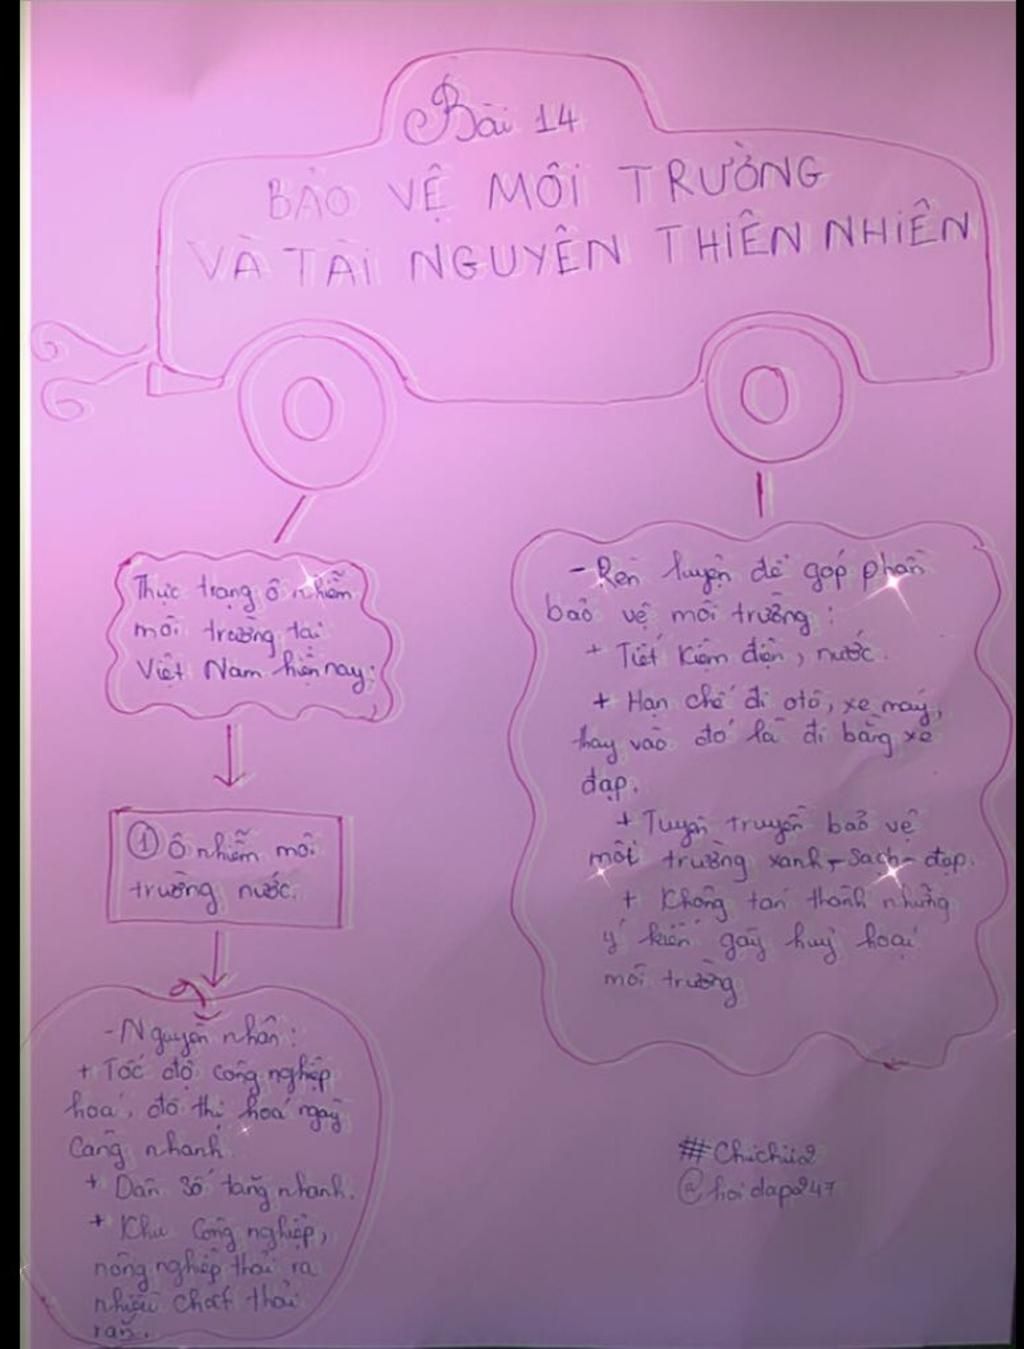 Bài 14
BẢO VỆ MÔI TRƯỜNG
VÀ TÀI NGUYÊN THIÊN NHIÊN
Thực trạng ô nhiễm
môi trường tại
Việt Nam hiện nay:
① Ô nhiễm môi
trường nước.
- Nguyên nhân:
+ Tốc độ công nghiệp
hoá, đô thị hoá ngày
càng nhanh.
+ Dân số tăng nhanh.
+ Khu công nghiệp,
nông nghiệp thải ra
nhiều chất thải
rắn.
- Rèn luyện để góp phần
bảo vệ môi trường:
+ Tiết kiệm điện, nước.
+ Hạn chế đi otô, xe máy,
thay vào đó là đi bằng xe
đạp.
+ Tuyên truyền bảo vệ
môi trường xanh - sạch - đẹp.
+ Không tán thành những
ý kiến gây huỷ hoại
môi trường
#Chichii2
@hoidap247